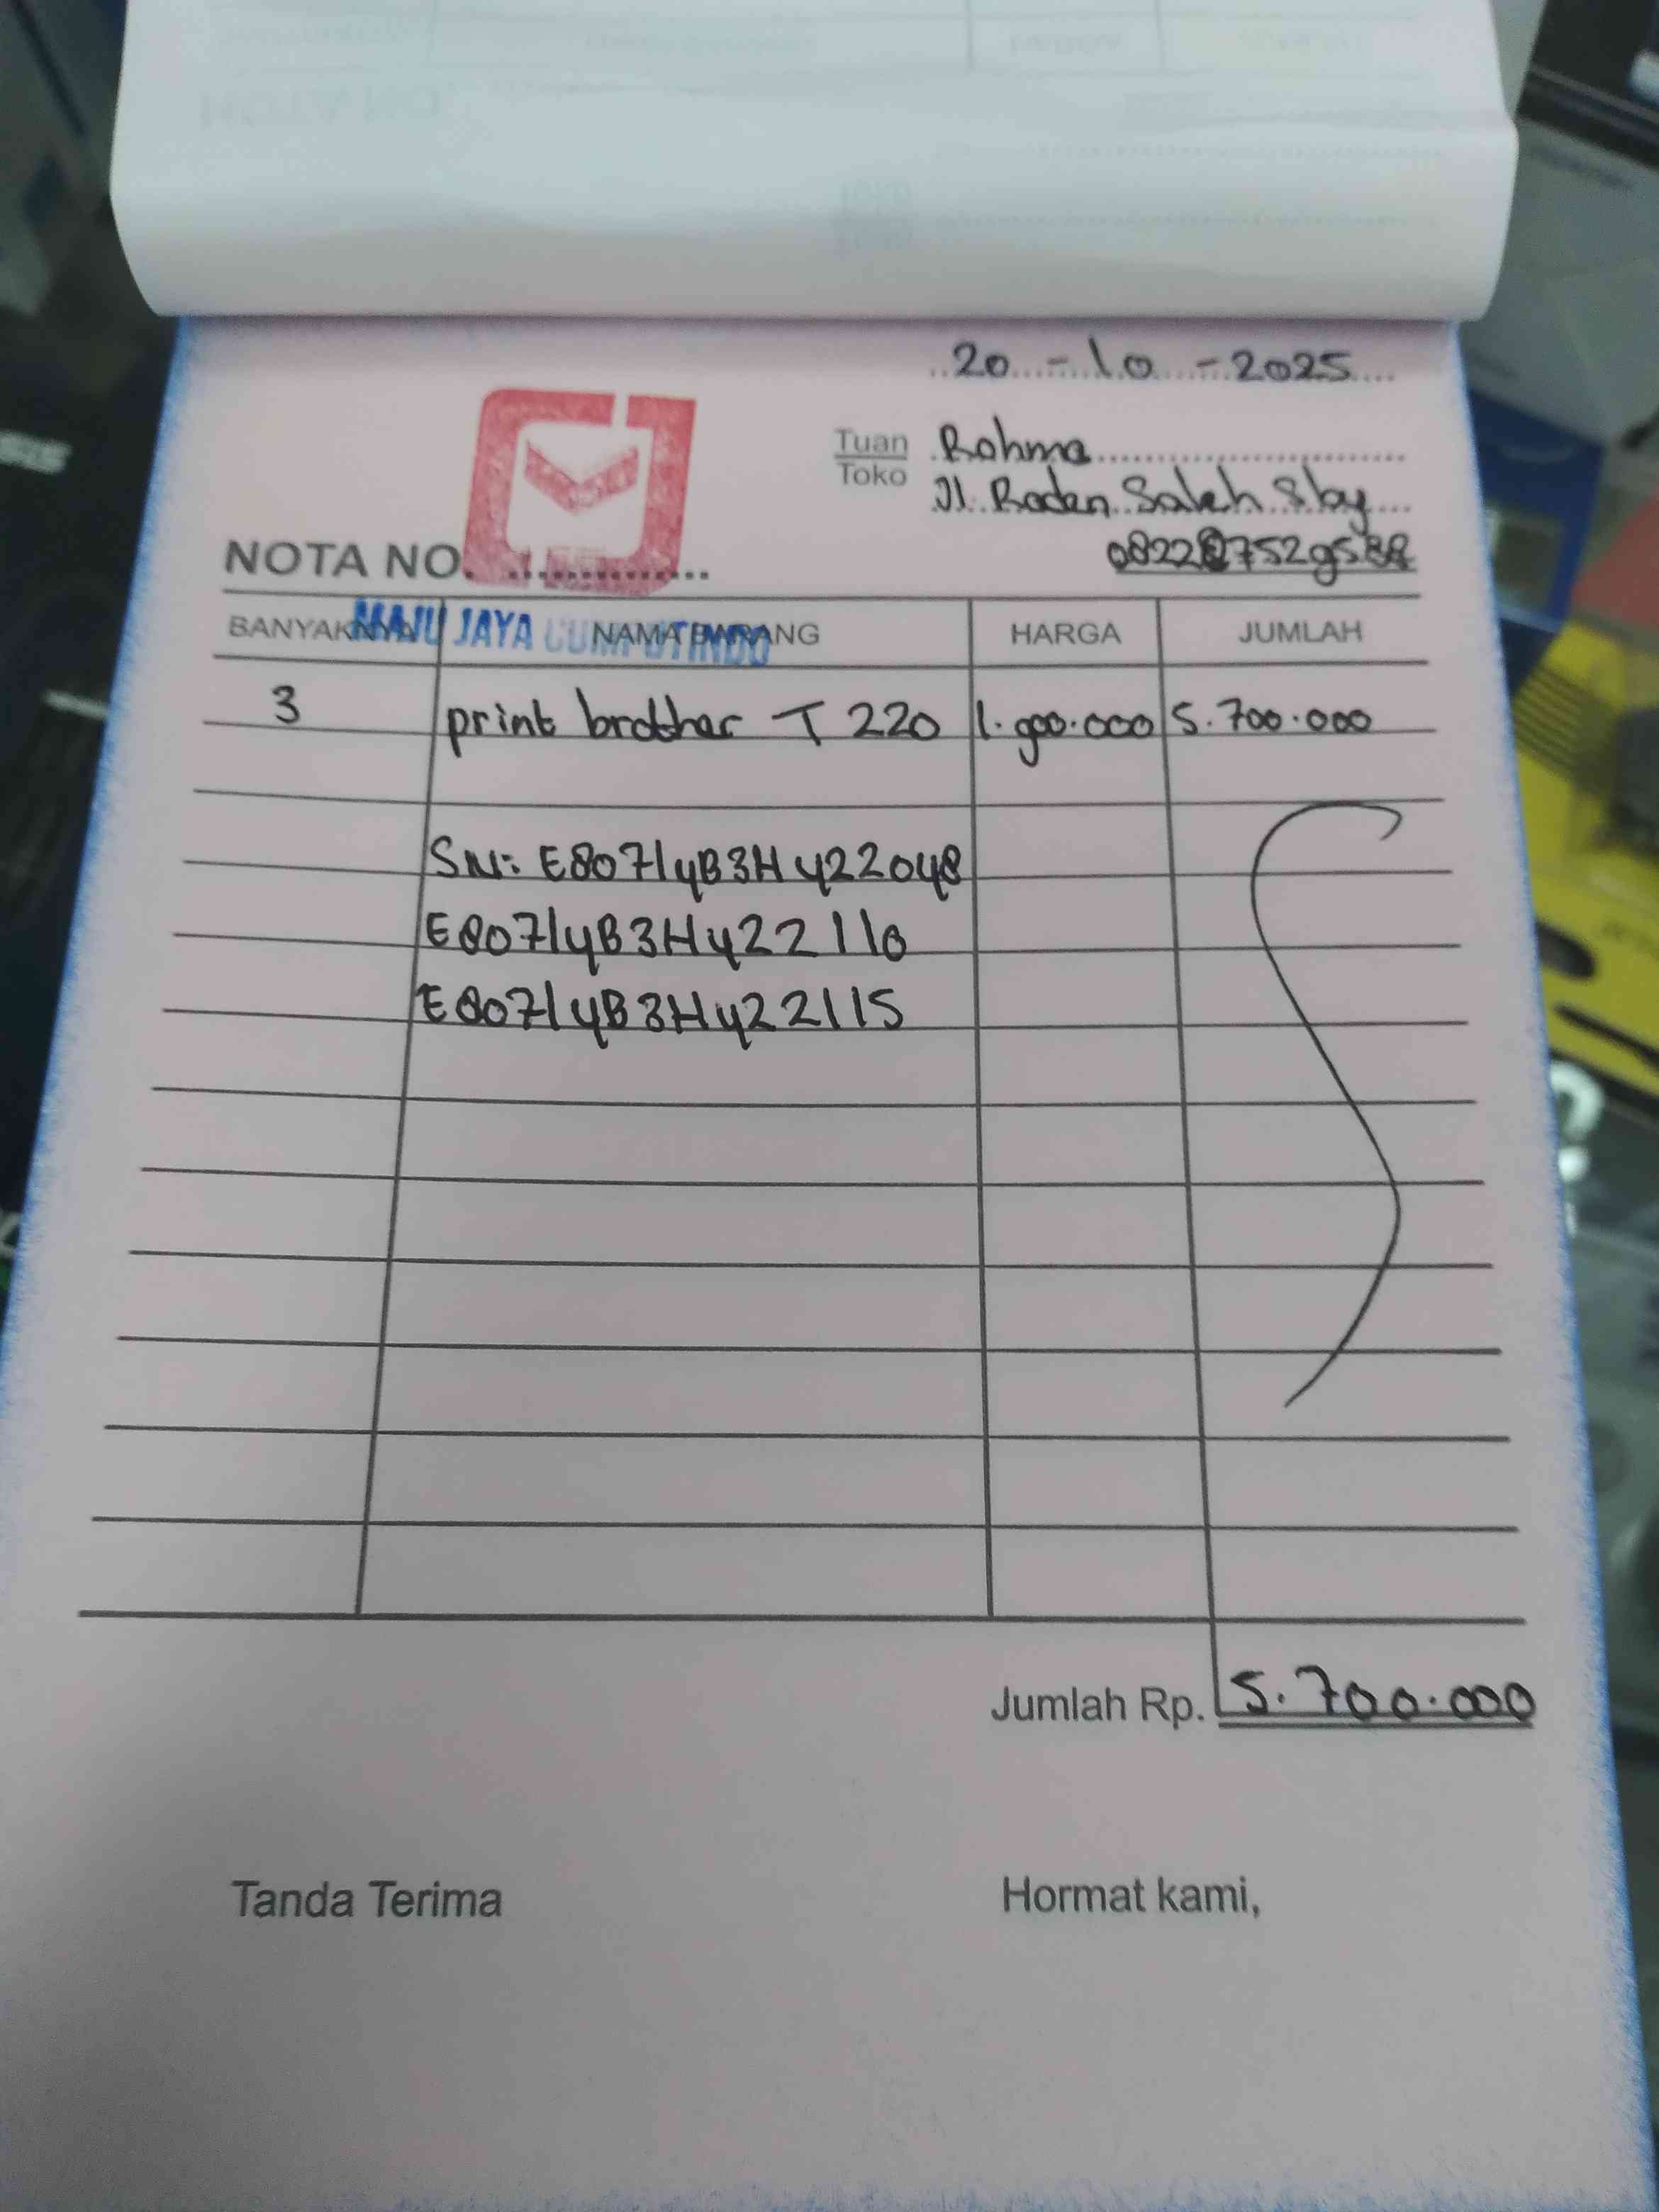 20 - 10 - 2025
Tuan Rahma
Toko Jl. Raden Saleh Sby
NOTA NO.
MAJU JAYA COMPUTINDO
BANYAKNYA NAMA BARANG HARGA JUMLAH
3 print brother T 220 1.900.000 5.700.000
SN: E80714B3H422048
E80714B3H422110
E80714B3H422115
Jumlah Rp. 5.700.000
Tanda Terima Hormat kami,